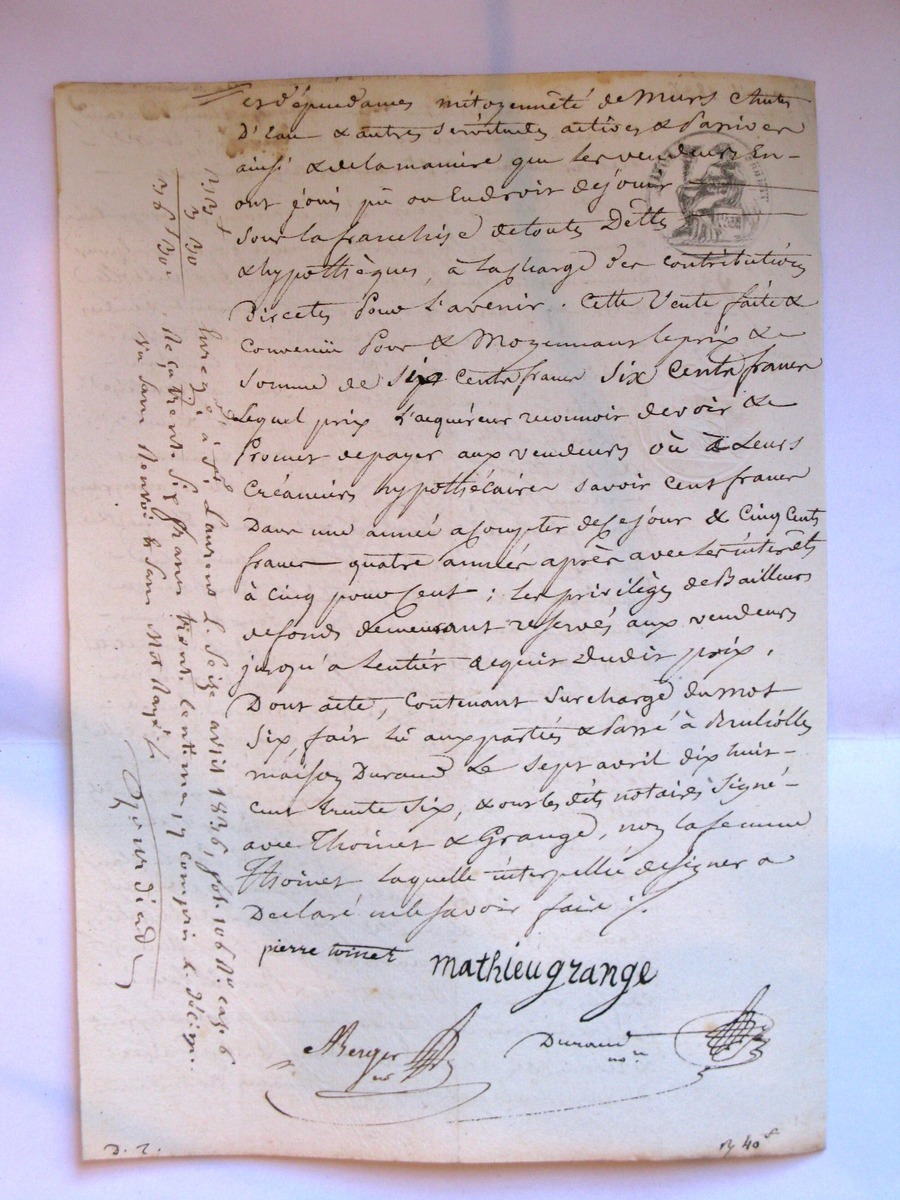 et dépendances mitoyennêté de Murs chutes
D'Eau & autres Servitudes actives & Passives
ainsi & de la maniere que les vendeurs En
ont joui pû ou En droit de jouir
sous la franchise de toutes Dettes
& hypothèques, à la charge des contributions
Directes Pour l'avenir. Cette Vente faite &
Convenüe Pour & Moyennant le prix &
Somme de Six Cents francs Six Cents francs
Lequel prix l'acquéreur reconnoit devoir &
Promet de payer aux vendeurs où à Leurs
Créanciers hypothécaires savoir Cent francs
Dans une année a Compter de Ce jour & Cinq Cents
francs quatre années après avec les interêts
à Cinq pour Cent ; les privilèges de Bailleurs
de fonds demeurant reservés aux vendeurs
jusqu'a l'entier acquit Dudit prix.
Dont acte, Contenant Surcharge du mot
Six, fait lû aux parties & Passé à
maison Durand Le Sept avril dix huit
Cent trente Six, & ont les dits notaires Signé
avec Thoinet & Grange, non la femme
Thoinet laquelle interpellée de signer a
Declaré ne le savoir faire ./.
pierre toinet
mathieu grange
Berger
nre
Durand
nore
D. 2.
40
Enreg.é à St. Laurent L. Seize avril 1836, fol. 106 Ro. case 6
Reçu trente Six francs trente centimes, y compris le décime.